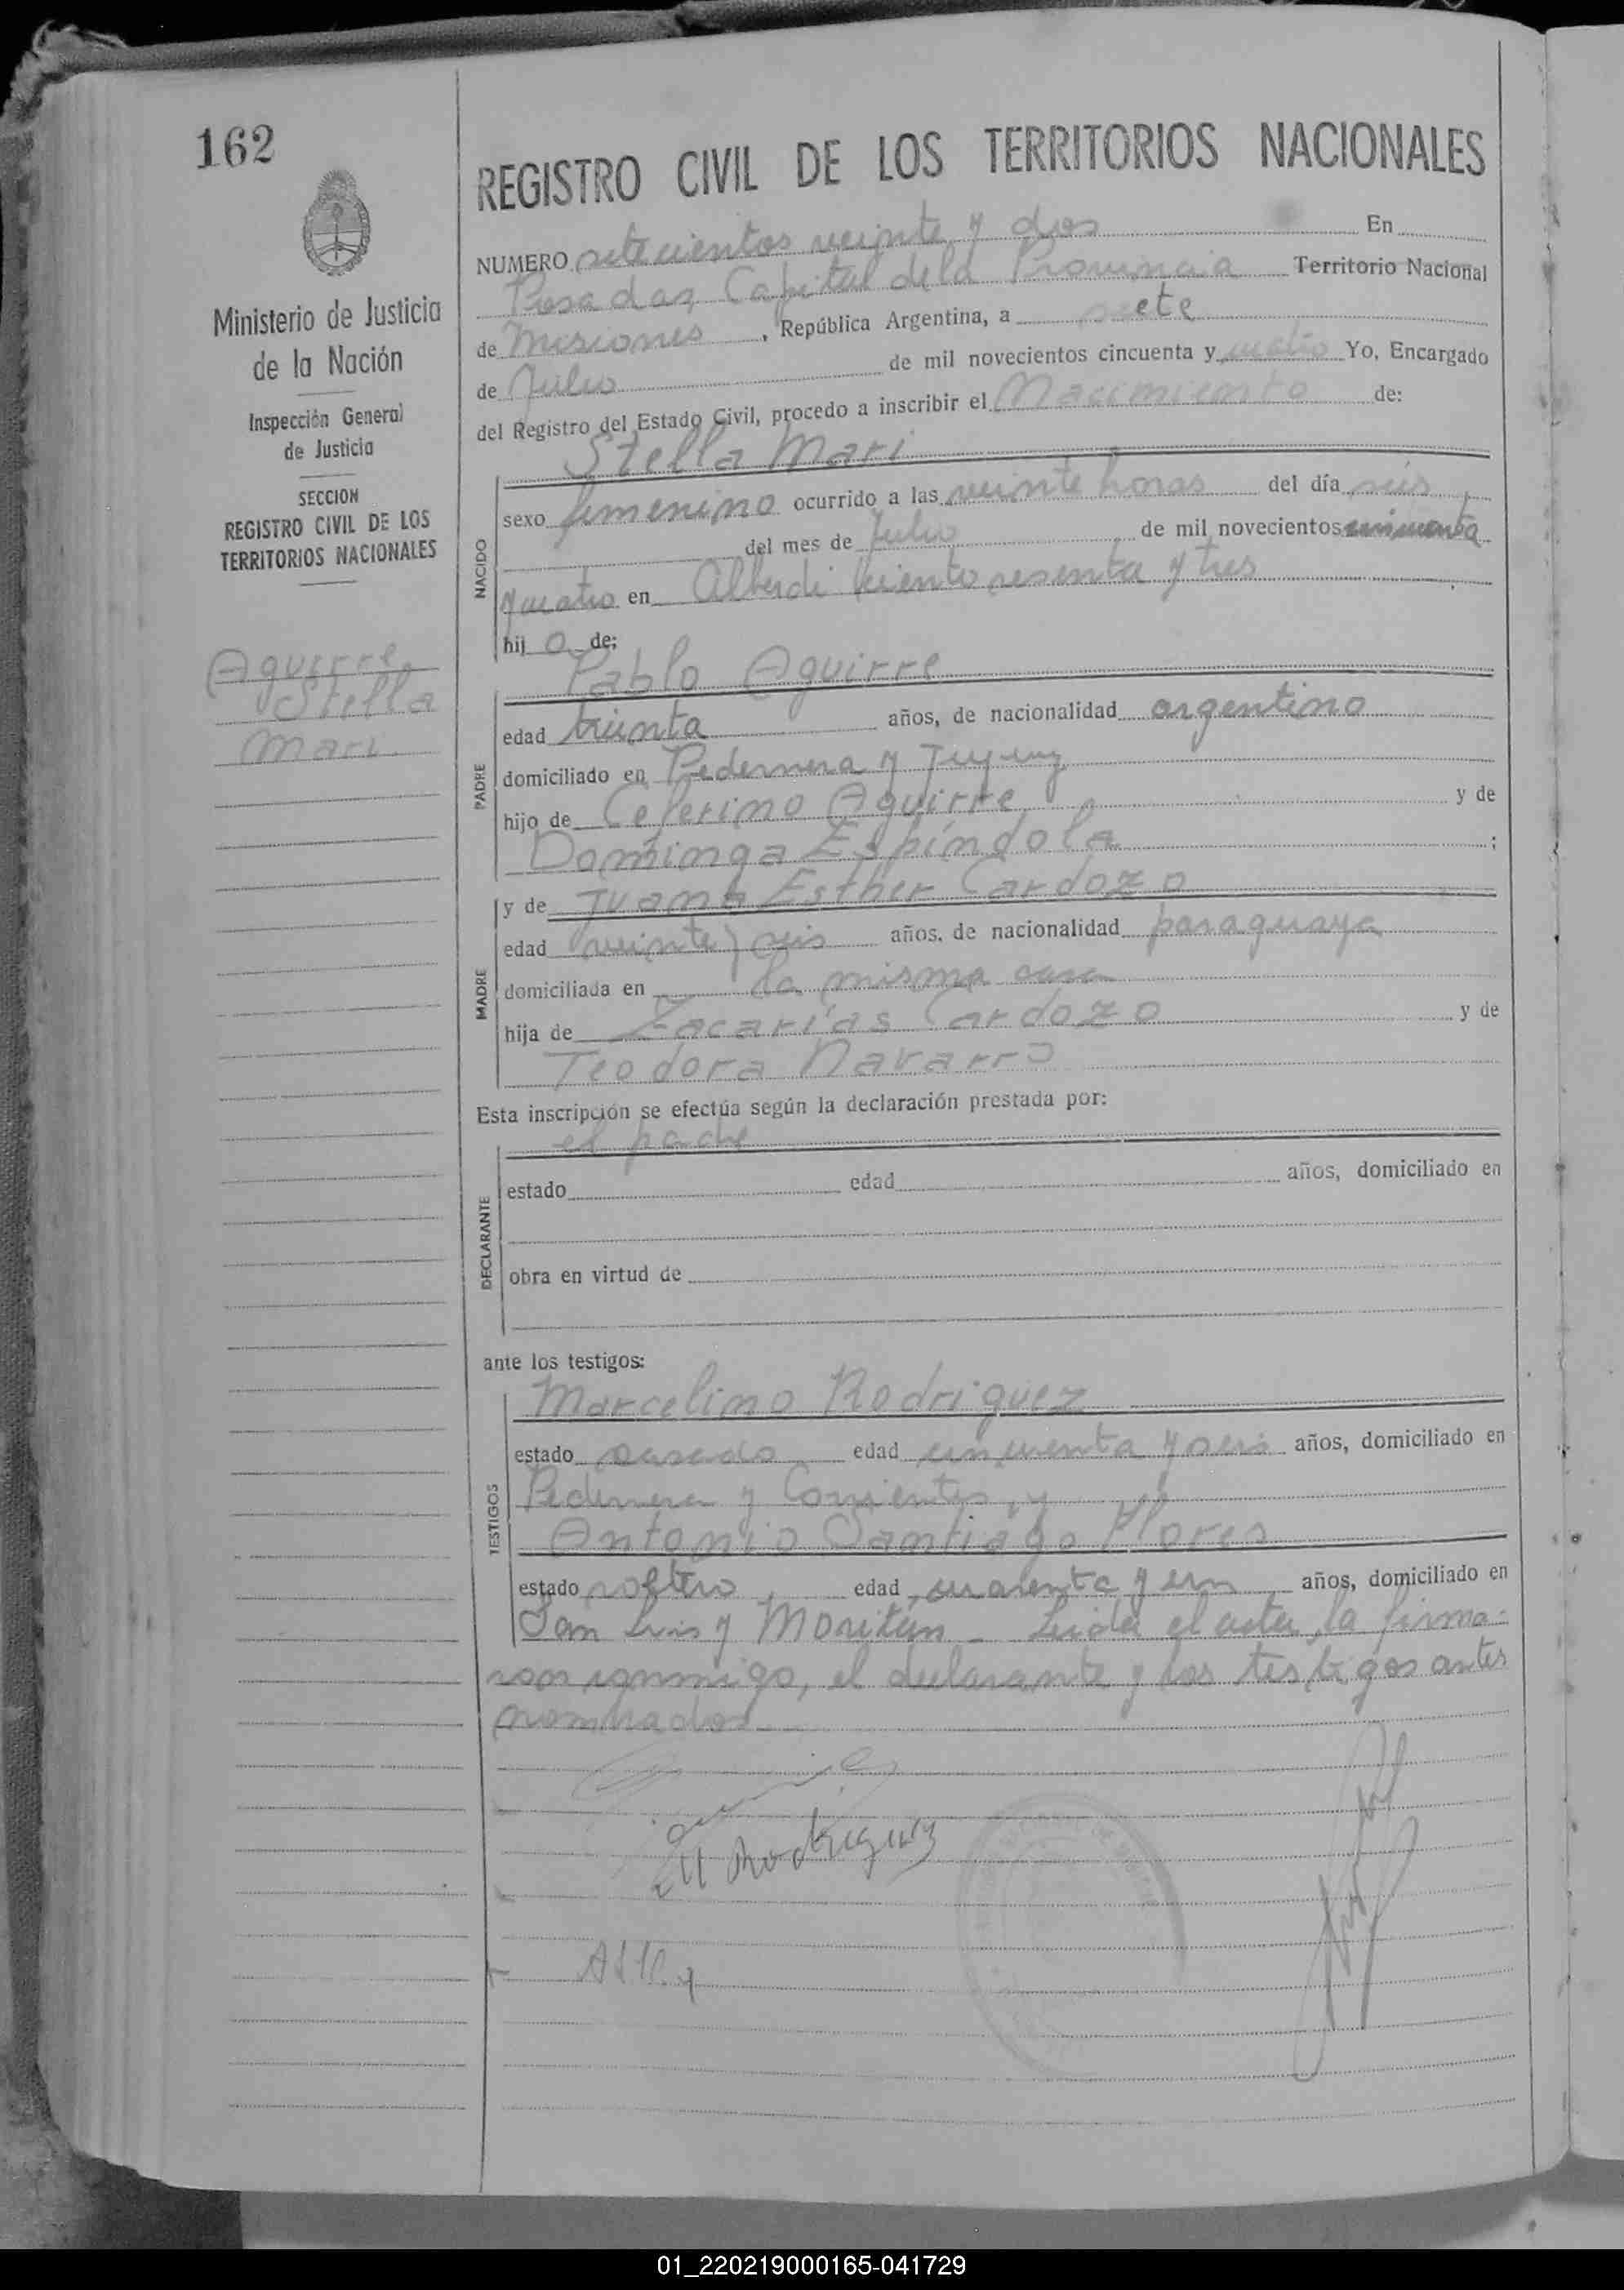 162
REGISTRO CIVIL DE LOS TERRITORIOS NACIONALES
Ministerio de Justicia
de la Nación
Inspección General
de Justicia
SECCION
REGISTRO CIVIL DE LOS
TERRITORIOS NACIONALES
Aguirre
Stella
Mari
NUMERO setecientos veinte y dos En
Posadas, Capital de la Provincia Territorio Nacional
de Misiones, República Argentina, a siete
de Julio de mil novecientos cincuenta y cuatro Yo, Encargado
del Registro del Estado Civil, procedo a inscribir el Nacimiento de:
NACIDO
Stella Mari
sexo femenino ocurrido a las veinte horas del día seis
del mes de Julio de mil novecientos cincuenta
y cuatro en Alberdi ciento sesenta y tres
hij a de:
PADRE
Pablo Aguirre
edad treinta años, de nacionalidad argentino
domiciliado en Pedernera y Jujuy
hijo de Ceferino Aguirre y de
Dominga Espíndola;
MADRE
y de Juana Esther Cardozo
edad veinte y seis años, de nacionalidad paraguaya
domiciliada en la misma casa
hija de Zacarías Cardozo y de
Teodora Navarro
Esta inscripción se efectúa según la declaración prestada por:
DECLARANTE
el padre
estado edad años, domiciliado en
obra en virtud de
ante los testigos:
TESTIGOS
Marcelino Rodriguez
estado casado edad cincuenta y seis años, domiciliado en
Pedernera y Corrientes, y
Antonio Santiago Flores
estado soltero, edad cuarenta y un años, domiciliado en
San Luis y Moritán - Leida el acta, la firma-
ron conmigo, el declarante y los testigos antes
nombrados
M Rodriguez
01_220219000165-041729